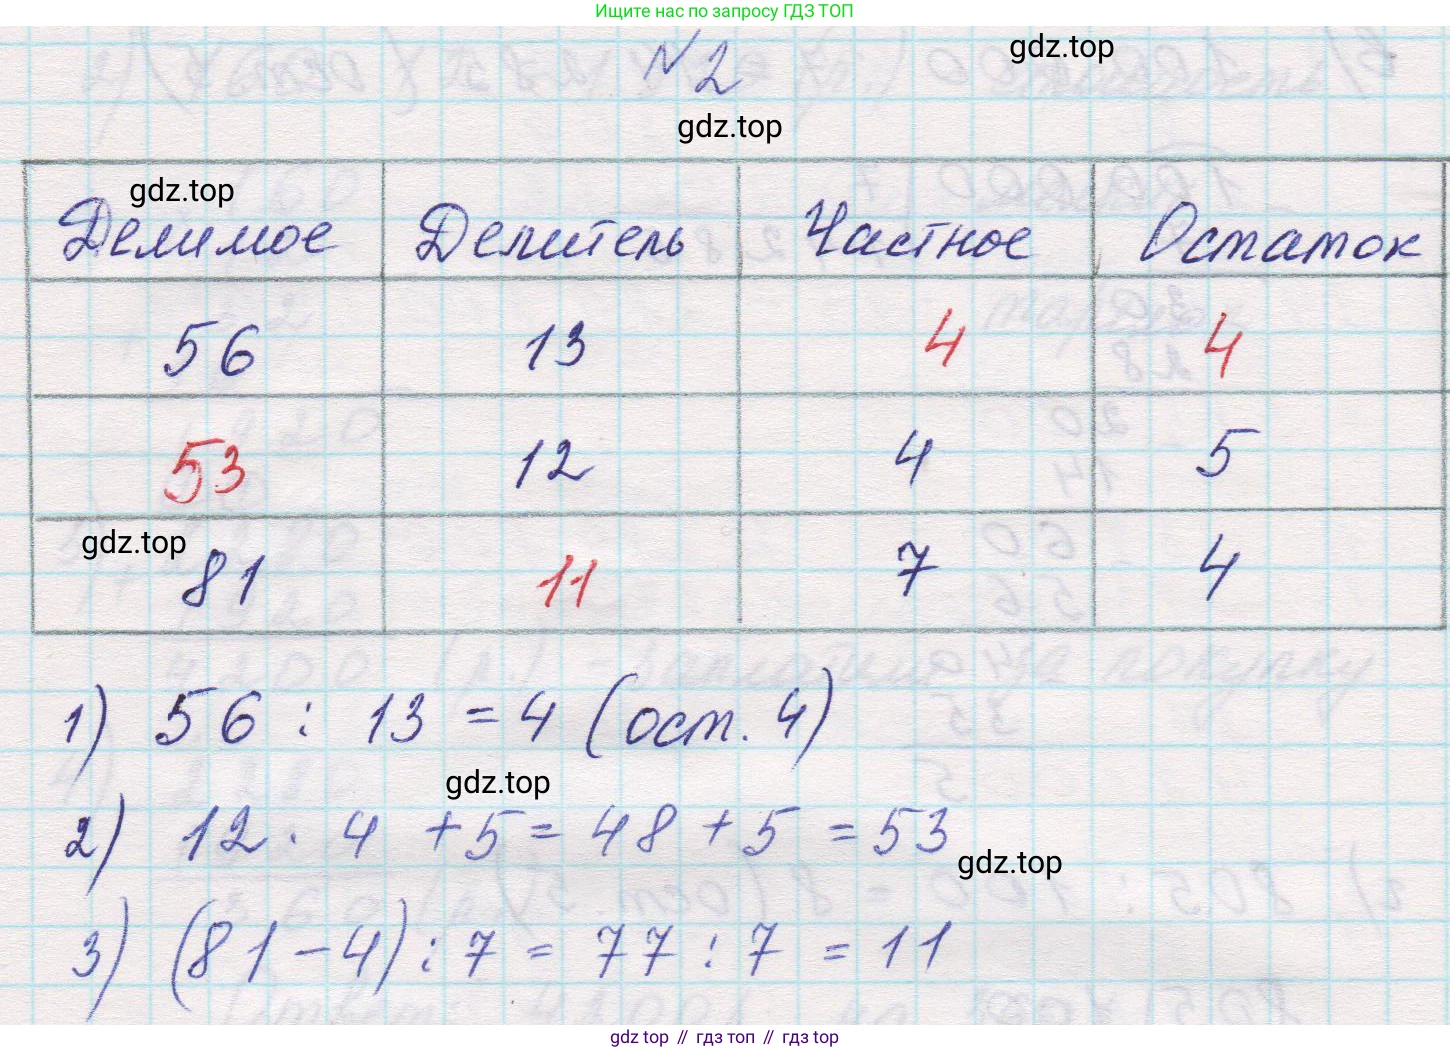 Ищите нас по запросу ГДЗ ТОП
gdz.top
N 2
gdz.top
gdz.top
Делимое Делитель Частное Остаток
56 13 4 4
53 12 4 5
gdz.top
81 11 7 4
1) 56 : 13 = 4 (ост. 4)
gdz.top
2) 12 · 4 + 5 = 48 + 5 = 53
gdz.top
3) (81 - 4) : 7 = 77 : 7 = 11
gdz top // гдз топ // гдз top